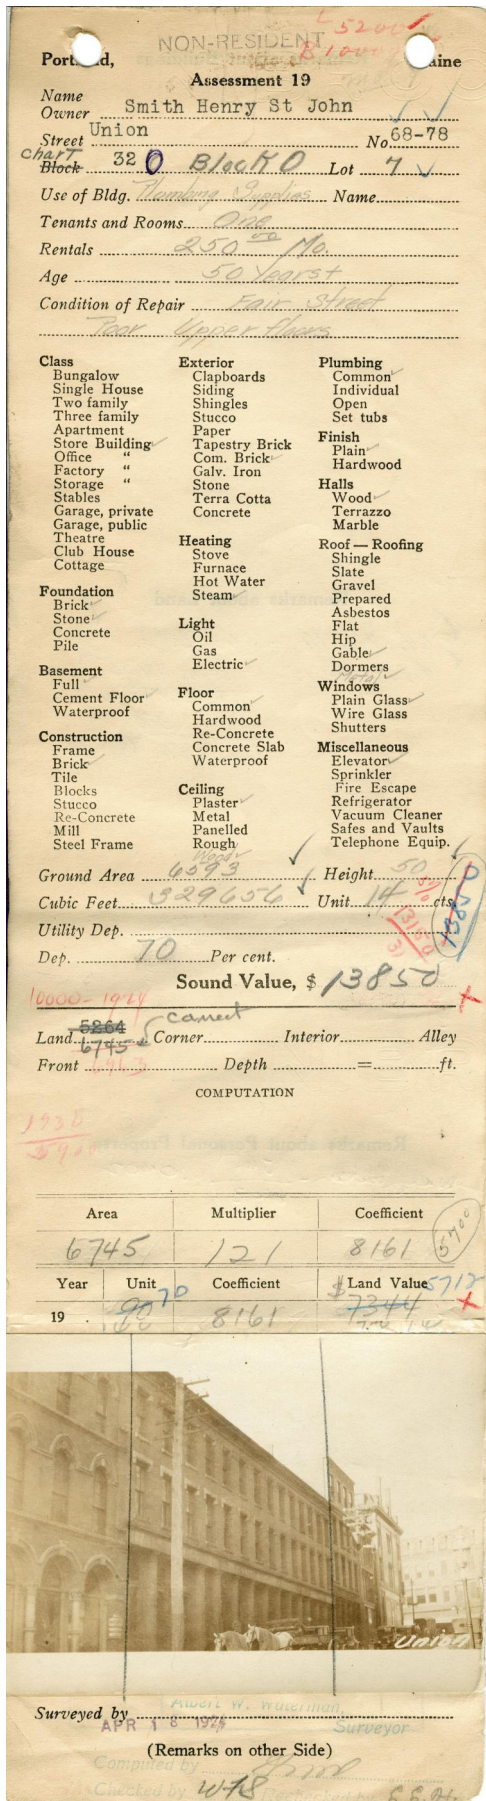 L 5200
NON-RESIDENT
B 1000
Portland, Maine
Assessment 19
Name
Owner Smith Henry St John
Street Union No. 68-78
Chart
Block 32 O Block O Lot 7
Use of Bldg. Plumbing Supplies Name
Tenants and Rooms One
Rentals 250 00 Mo.
Age 50 Years +
Condition of Repair Fair Street
Poor Upper floors
Class
Bungalow
Single House
Two family
Three family
Apartment
Store Building
Office "
Factory "
Storage "
Stables
Garage, private
Garage, public
Theatre
Club House
Cottage
Foundation
Brick
Stone
Concrete
Pile
Basement
Full
Cement Floor
Waterproof
Construction
Frame
Brick
Tile
Blocks
Stucco
Re-Concrete
Mill
Steel Frame
Exterior
Clapboards
Siding
Shingles
Stucco
Paper
Tapestry Brick
Com. Brick
Galv. Iron
Stone
Terra Cotta
Concrete
Heating
Stove
Furnace
Hot Water
Steam
Light
Oil
Gas
Electric
Floor
Common
Hardwood
Re-Concrete
Concrete Slab
Waterproof
Ceiling
Plaster
Metal
Panelled
Rough
Wood
Plumbing
Common
Individual
Open
Set tubs
Finish
Plain
Hardwood
Halls
Wood
Terrazzo
Marble
Roof — Roofing
Shingle
Slate
Gravel
Prepared
Asbestos
Flat
Hip
Gable
Dormers
Metal
Windows
Plain Glass
Wire Glass
Shutters
Miscellaneous
Elevator
Sprinkler
Fire Escape
Refrigerator
Vacuum Cleaner
Safes and Vaults
Telephone Equip.
Ground Area 6593 Height 50
Cubic Feet 329656 Unit 14 cts.
Utility Dep.
Dep. 70 Per cent.
Sound Value, $ 13850
10000-1924
5264 correct
Land 6745 Corner Interior Alley
Front Depth = ft.
COMPUTATION
1938
Area Multiplier Coefficient
6745 121 8161 5700
Year Unit 70 Coefficient $ Land Value 5712
19 90 8161 7344
Union
Surveyed by Albert W. Waterman,
APR 18 192
Surveyor
(Remarks on other Side)
Computed by
Checked by WTS